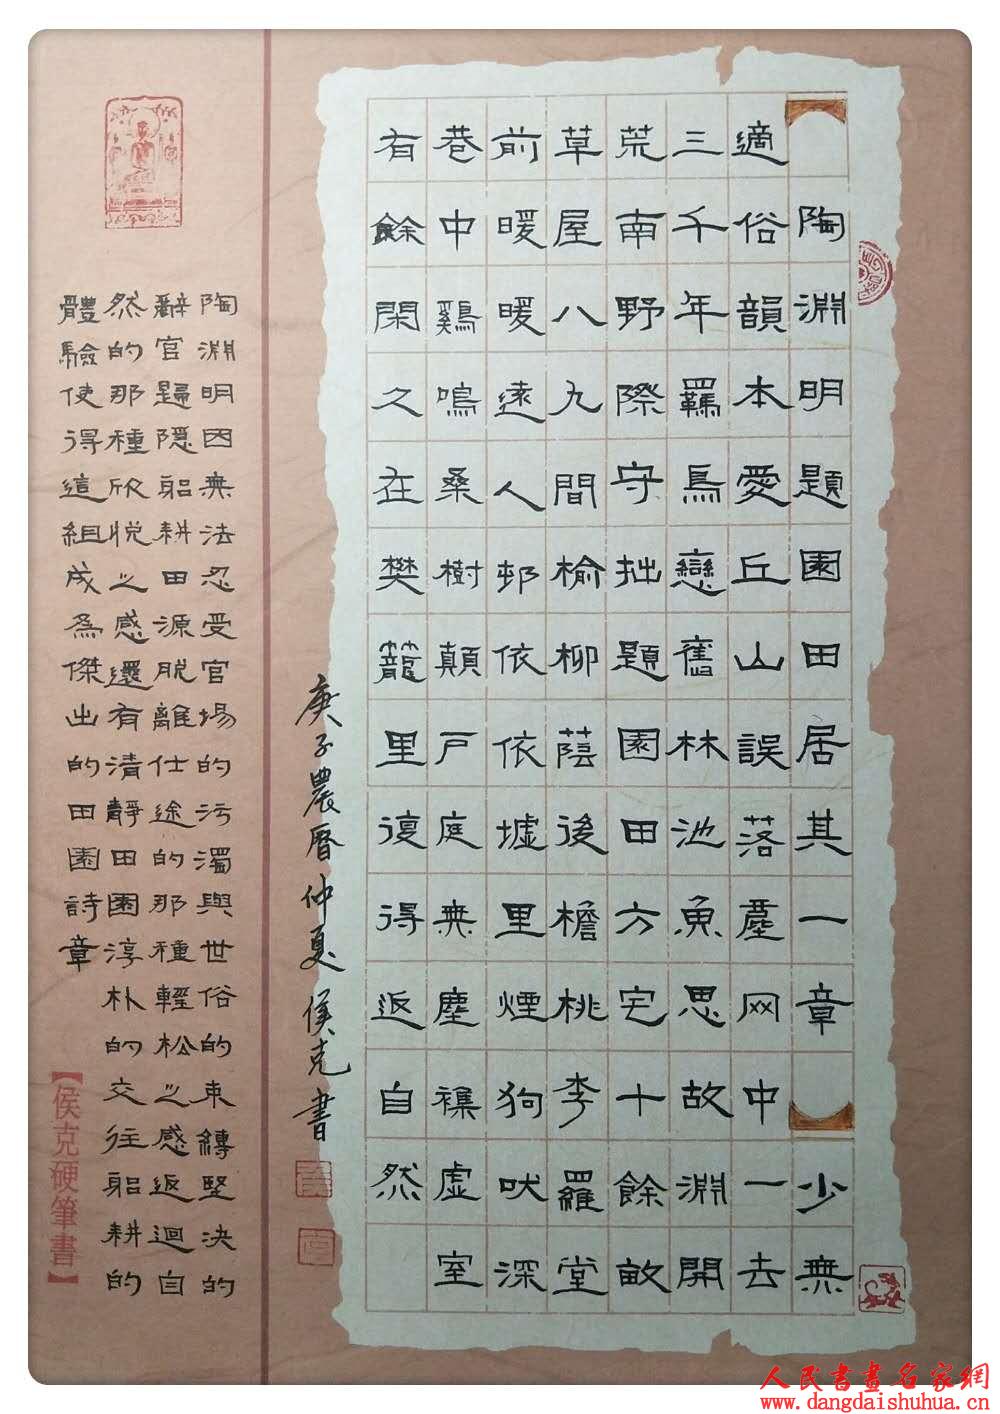 陶淵明題園田居其一章 少無
適俗韻本愛丘山誤落塵网中一去
三千年羈鳥戀舊林池魚思故淵開
荒南野際守拙題園田方宅十餘畝
草屋八九間榆柳蔭後檐桃李羅堂
前暖暖遠人邨依依墟里煙狗吠深
巷中鷄鳴桑樹顛戶庭無塵襍虛室
有餘閑久在樊籠里復得返自然
庚子農曆仲夏侯克書
陶淵明因無法忍受官場的污濁與世俗的束縛堅決的
辭官歸隱躬耕田源脫離仕途的那種輕松之感返迴自
然的那種欣悅之感還有清靜田園淳朴的交往躬耕的
體驗使得這組成為傑出的田園詩章
【侯克硬筆書】
人民書畫名家網
www.dangdaishuhua.cn